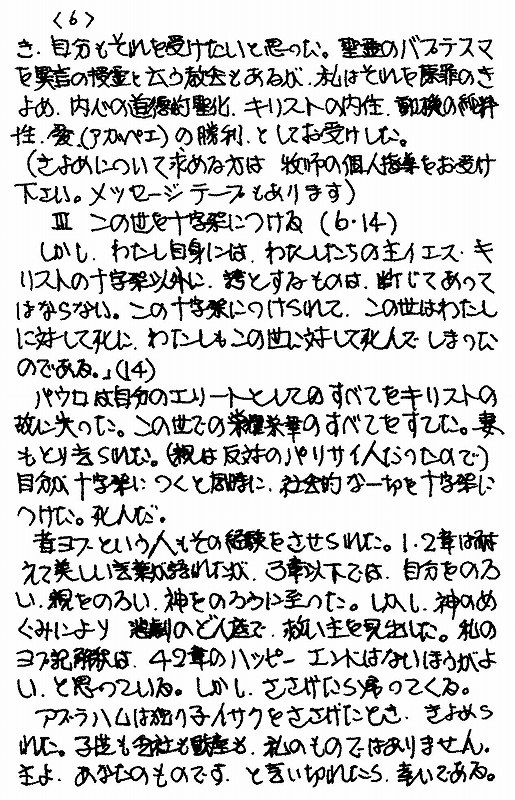 <6>
き、自分もそれを受けたいと思った。聖霊のバプテスマ
を異言の授霊と云う教会もあるが、私はそれを原罪のき
よめ、内心の道徳的聖化、キリストの内住、動機の純粋
性、愛、(アガペエ)の勝利、としてお受けした。
(きよめについて求める方は 牧師の個人指導をお受け
下さい。メッセージテープもあります)
Ⅲ この世を十字架につける (6・14)
しかし、わたし自身には、わたしたちの主イエス・キ
リストの十字架以外に、誇とするものは、断じてあって
はならない。この十字架につけられて、この世はわたし
に対して死に、わたしもこの世に対して死んでしまった
のである。」(14)
パウロは自分のエリートとしてのすべてをキリストの
故に失った。この世での栄耀栄華のすべてをすてた。妻
もとり去られた。(親は反対のパリサイ人だったので)
自分が十字架につくと同時に、社会的な一切を十字架に
つけた。死んだ。
昔ヨブという人もその経験をさせられた。1・2章は耐
えて美しい言葉が語られたが、3章以下では、自分をのろ
い、親をのろい、神をのろうに至った。しかし、神のめ
ぐみにより 悲劇のどん底で、救い主を見出した。私の
ヨブ記解釈は、42章のハッピーエンドはないほうがよ
い、と思っている。しかし、ささげたら帰ってくる。
アブラハムは独り子イサクをささげたとき、きよめら
れた。子供も会社も財産も、私のものではありません。
主よ、あなたのものです、と言い切れたら、幸いである。